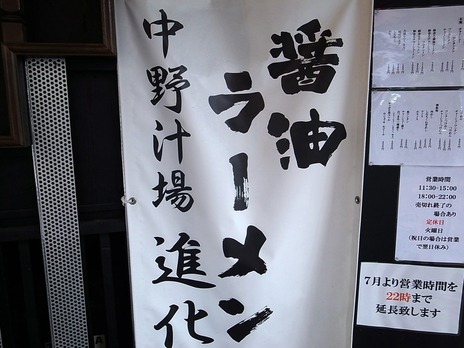 醤油
ラーメン
中野汁場 進化
営業時間
11:30-15:00
18:00-22:00
売切れ終了の
場合あり
定休日
火曜日
(祝日の場合は営業
で翌日休み)
7月より営業時間を
22時まで
延長致します